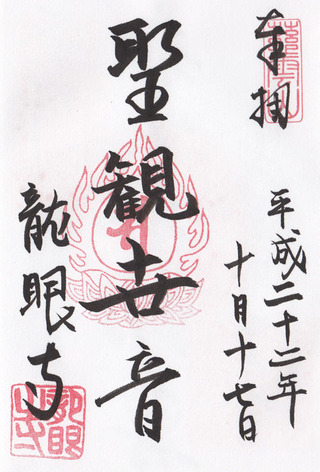 奉拝
平成二十二年
十月十七日
聖観世音
龍眼寺